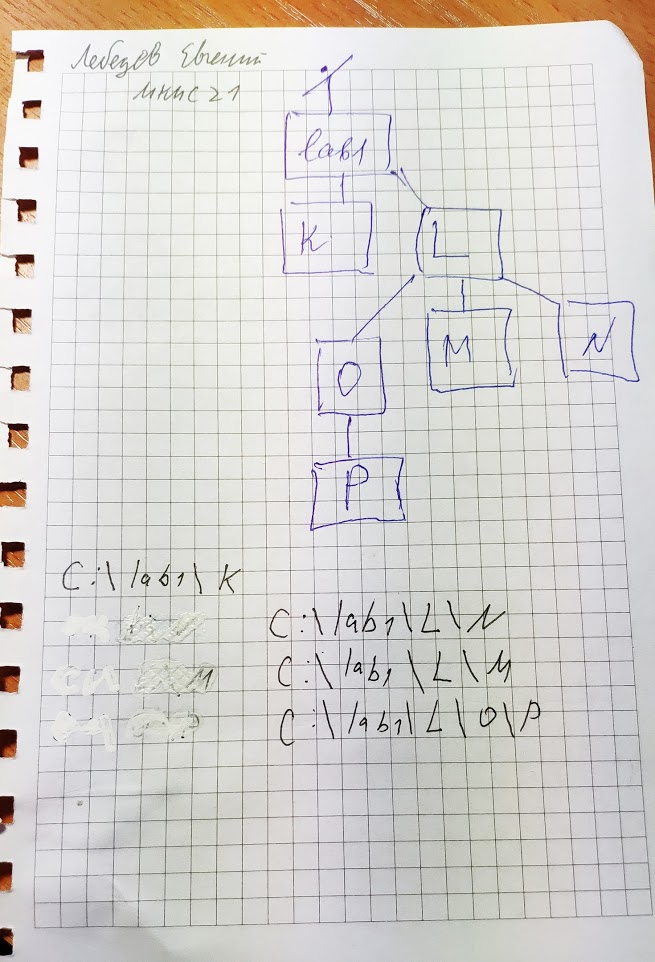 Лебедев Евгений
ИНИС 21
lab1
K
L
O
M
N
P
C:\lab1\K
C:\lab1\L\N
C:\lab1\L\M
C:\lab1\L\O\P